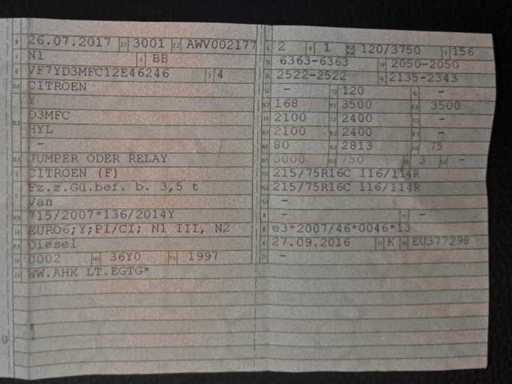 26.07.2017 3001 AWV002177
N1 BB
VF7YD3MFC12E46246 4
CITROEN
Y
D3MFC
HYL
-
JUMPER ODER RELAY
CITROEN (F)
Fz.z.Gü.bef. b. 3,5 t
Van
715/2007*136/2014Y
EURO6;Y;PI/CI; N1 III, N2
Diesel
0002 36Y0 1997
WW.AHK LT.EGTG*
2 1 120/3750 156
6363-6363 2050-2050
2522-2522 2135-2343
- 120 -
168 3500 3500
2100 2400 -
2100 2400 -
80 2813 75
3000 750 3 -
215/75R16C 116/114R
215/75R16C 116/114R
-
- -
e3*2007/46*0046*13
27.09.2016 K EU377298
-